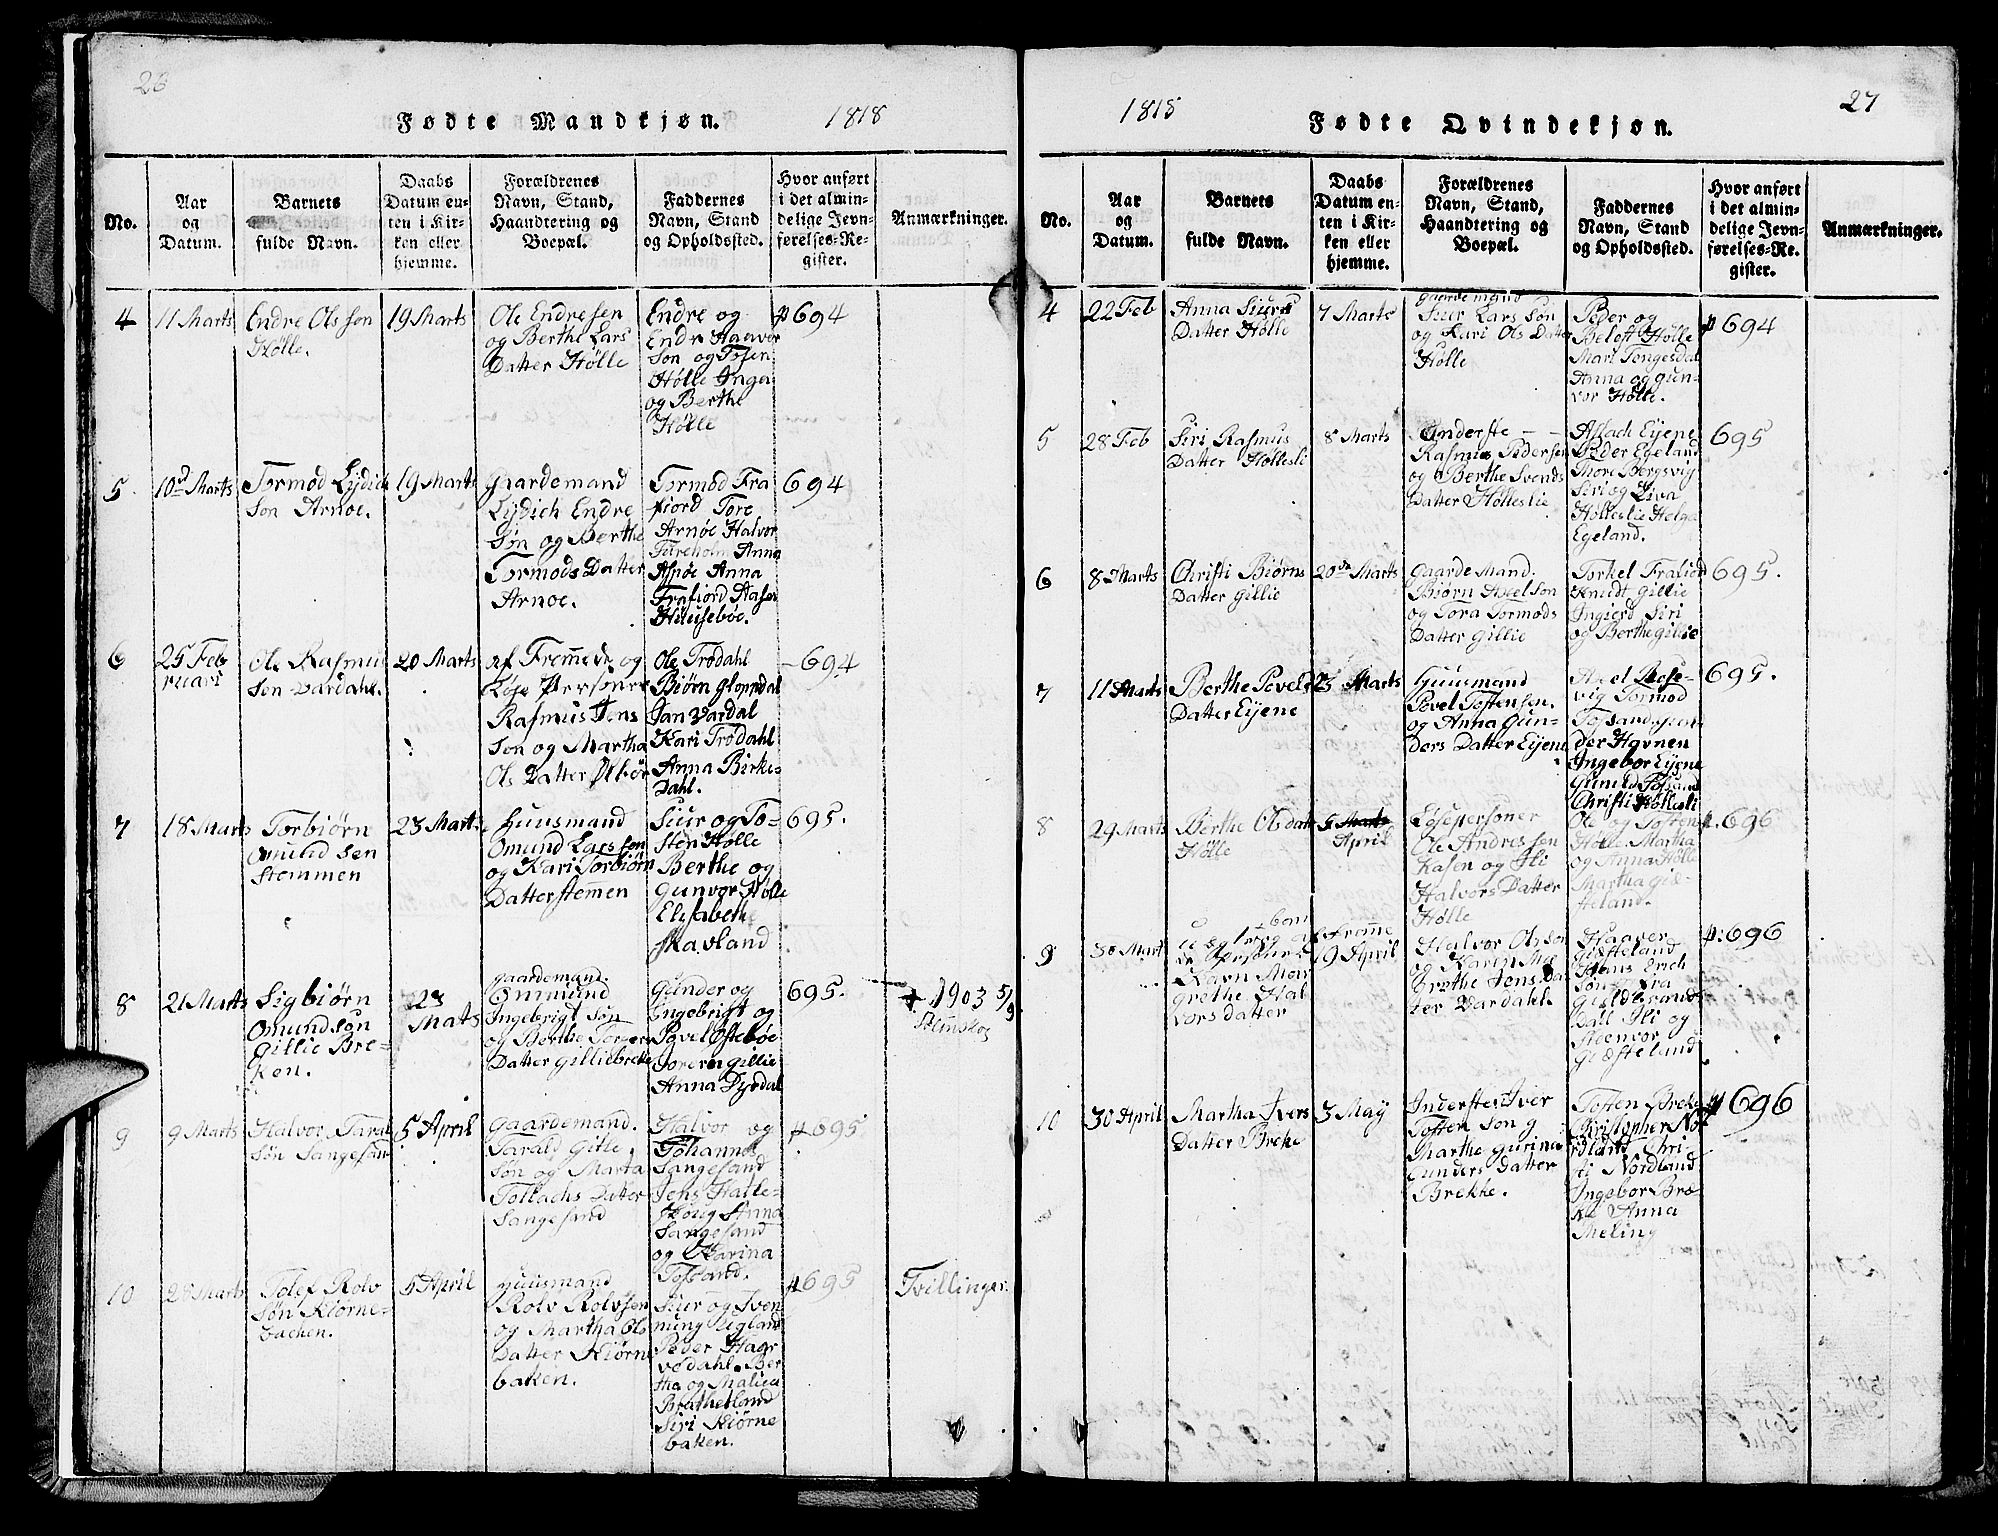 26
Fødte Mandkjøn.
1818
No.
Aar
og
Datum.
Barnets
fulde Navn.
Daabs
Datum en-
ten i Kir-
ken eller
hjemme.
Forældrenes
Navn, Stand,
Haandtering og
Boepæl.
Faddernes
Navn, Stand
og Opholdssted.
Hvor anført
i det almin-
delige Jevn-
førelses-Re-
gister.
Anmærkninger.
4
11 Marts
Endre Ols søn
Hølle.
19 Marts
Ole Endresen
og Berthe Lars
Datter Hølle
Endre og
Endr Haavor
Søn og Tosen
Hølle Inger
og Berthe
Hølle
p 694
5.
10d Marts
Tormod Lydich
Søn Arnøe.
19 Marts
Gaardemand
Lydich Endre
Søn og Berthe
Tormods Datter
Arnøe.
Tormod Fra
fiord Tore
Arnøe Halvor
Anna
Aspøe Anna
Frafiord Aasen
Huusebøe.
694
6
25 Feb
ruari
Ole Rasmus
Søn Vardahl.
20 Marts
af Fremede og
Løse Personer
Rasmus Jens
Søn og Martha
Ols Datter
Ole Trødahl
Biørn Gloppdal
Jan Vardal
Kari Trødahl
Anna Birke-
Dahl.
694
7
18 Marts
Torbiørn
Omund Søn
Stemmen
23 Marts
Huusmand
Omund Lars søn
og Kari Torbiørn
Datter Stemmen
Siur og To-
sten Hølle
Berthe og
Gunvor Hølle
Elisabethe
Skavland
695.
8
21 Marts
Sigbiørn
Omund søn
Gillie Bre-
ken.
23
Mats
Gaardemand.
Ommund
Ingebrigt Søn
og Berthe Torger
Datter Gilliebrekke
Gunder og
Ingebrigt og
Povel Østebøe
Soren Gillie
Anna Dyrdal
695.
+ 1903 5/9
9
9 Marts
Halvor Taral
Søn Sangesand
5 April
Gaardemand.
Tarald Gitle
Søn og Marta
Tollachs Datter
Sangesand
Halvor og
Johanna
Sangesand
Jens Halle-
skoug Anna
Sangesand
og Karina
Tossand.
p 695
10
28 Marts
Tolef Rolv
Søn Kiørne-
bachen.
5 April
Huusmand
Rolv Rolvsen
og Martha Ols
Datter Kiørne
baken.
Siur og Sven
nung Uegland
Peder Haar
vedahl. Ber
tha og Malien
Bratheland
Siri Kiørne
baken.
p 695
Tvillinger.
1818
Fødte Qvindekjøn.
27
No.
Aar
og
Datum.
Barnets
fulde Navn.
Daabs
Datum en-
ten i Kir-
ken eller
hjemme.
Forældrenes
Navn, Stand,
Haandtering og
Boepæl.
Faddernes
Navn, Stand
og Opholdssted.
Hvor anført
i det almin-
delige Jevn-
førelses-Re-
gister.
Anmærkninger.
4
22 Feb
Anna Siurs
Datter Hølle
7 Marts
Gaardemand
Siur Lars Søn
og Kari Ols Datter
Hølle
Peder og
Hølle
Mari Tengesdal
Anna og Gun-
vor Hølle.
p 694
5
28 Feb
Siri Rasmus
Datter Høllesli
8 Marts
Inderste - -
Rasmus Pedersen
og Berthe Svends
Datter Høllesslie
Aslach Eyene
Peder Egeland
Thore Bergsvig
Siri og Siva
Høllesslie Helge
Egeland.
695
6
8 Marts
Christi Biørns
Datter Gillie
20de Marts
Gaarde Mand.
Biørn Axelson
og Tora Tormods
Datter Gillie
Torkel Frafiord
Knudt Gillie
Ingierd Siri
og Berthe Gillie
695.
7
11 Marts
Berthe Povels
Datter Eyene
25 Marts
Huusmand
Povel Tostensen.
og Anna Gun-
ders Datter Eyene
Axel Mose-
vig Tormod
Tossand Gun-
der Havnen
Ingebor Eyene
Gunild Tossand
Christi Høllesli
695.
8
29 Marts
Birthe Olsdatter
Hølle
5 Marts
April
Løsepersoner
Ole Andres sen
Kasen og Sli
Halvors Datter
Hølle
Ole og Tosten
Hølle. Martha
og Anna Hølle
Martha Giæ-
steland.
p. 696
9
30 Mart
Navn Mar
grethe Hal
vors datter
19 April
Halvor Ols søn
og Karen Ma
Grethe Jens Da
ter Vardahl.
Haaver
Giesteland
Hans Erich
Søn fra
Guldbrands
Dall Sli og
Steenvor
Giesteland
p: 696
10
30 April
Martha Ivers
Datter Breke
3 May
Inderste Iver
Tosten Søn g
Marthe Gurina
Gunders Datter
Brekke.
Tosten Breke
Christopher No
rdland Chri-
sti Nordland
Ingebor Bre
ke Anna
Meling
p 696